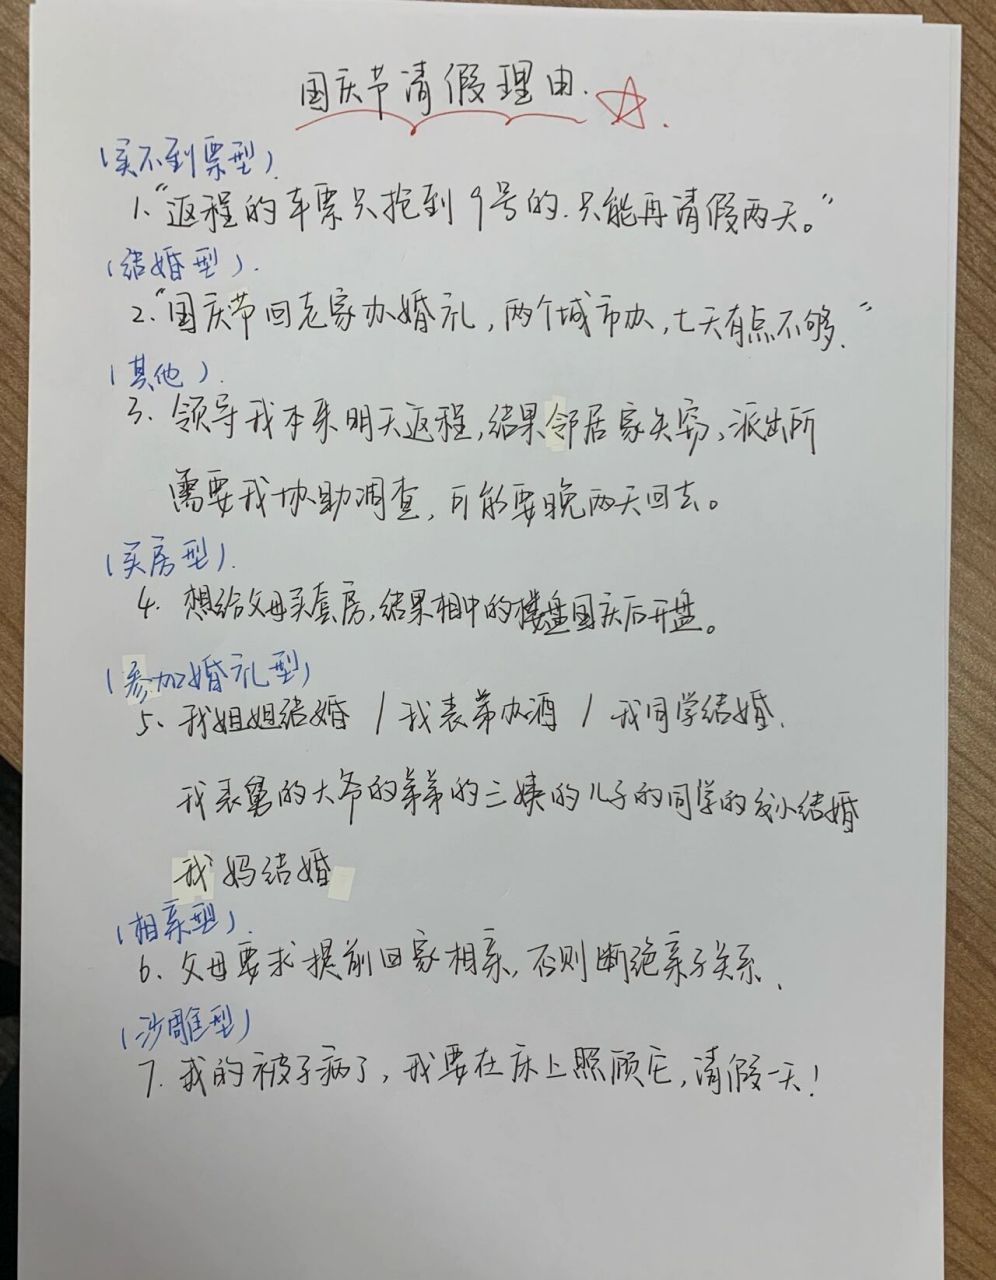 国庆节请假理由.
(买不到票型).
1、“返程的车票只抢到9号的.只能再请假两天。”
(结婚型).
2、“国庆节回老家办婚礼,两个城市办,七天有点不够.”
(其他).
3、领导我本来明天返程,结果邻居家失窃,派出所
需要我协助调查,可能要晚两天回去。
(买房型).
4、想给父母买套房,结果相中的楼盘国庆后开盘。
(参加婚礼型)
5、我姐姐结婚 / 我表弟办酒 / 我同学结婚.
我表舅的大爷的弟弟的三姨的儿子的同学的发小结婚
我妈结婚
(相亲型).
6、父母要求提前回家相亲,否则断绝亲子关系.
(沙雕型)
7、我的被子病了,我要在床上照顾它,请假一天!